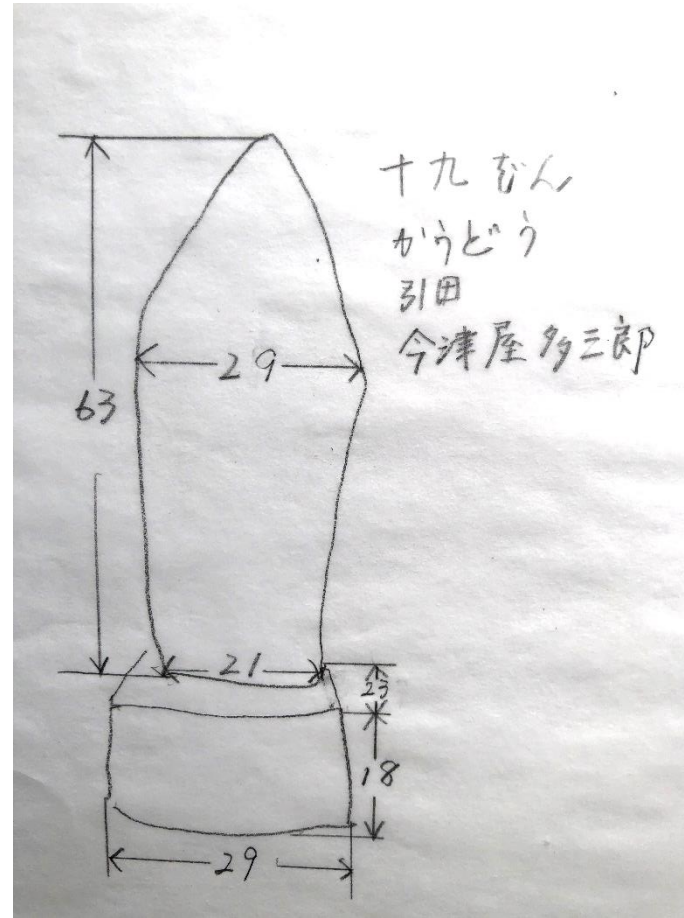 十九ばん
かうどう
引田
今津屋多三郎
29
63
21
23
18
29